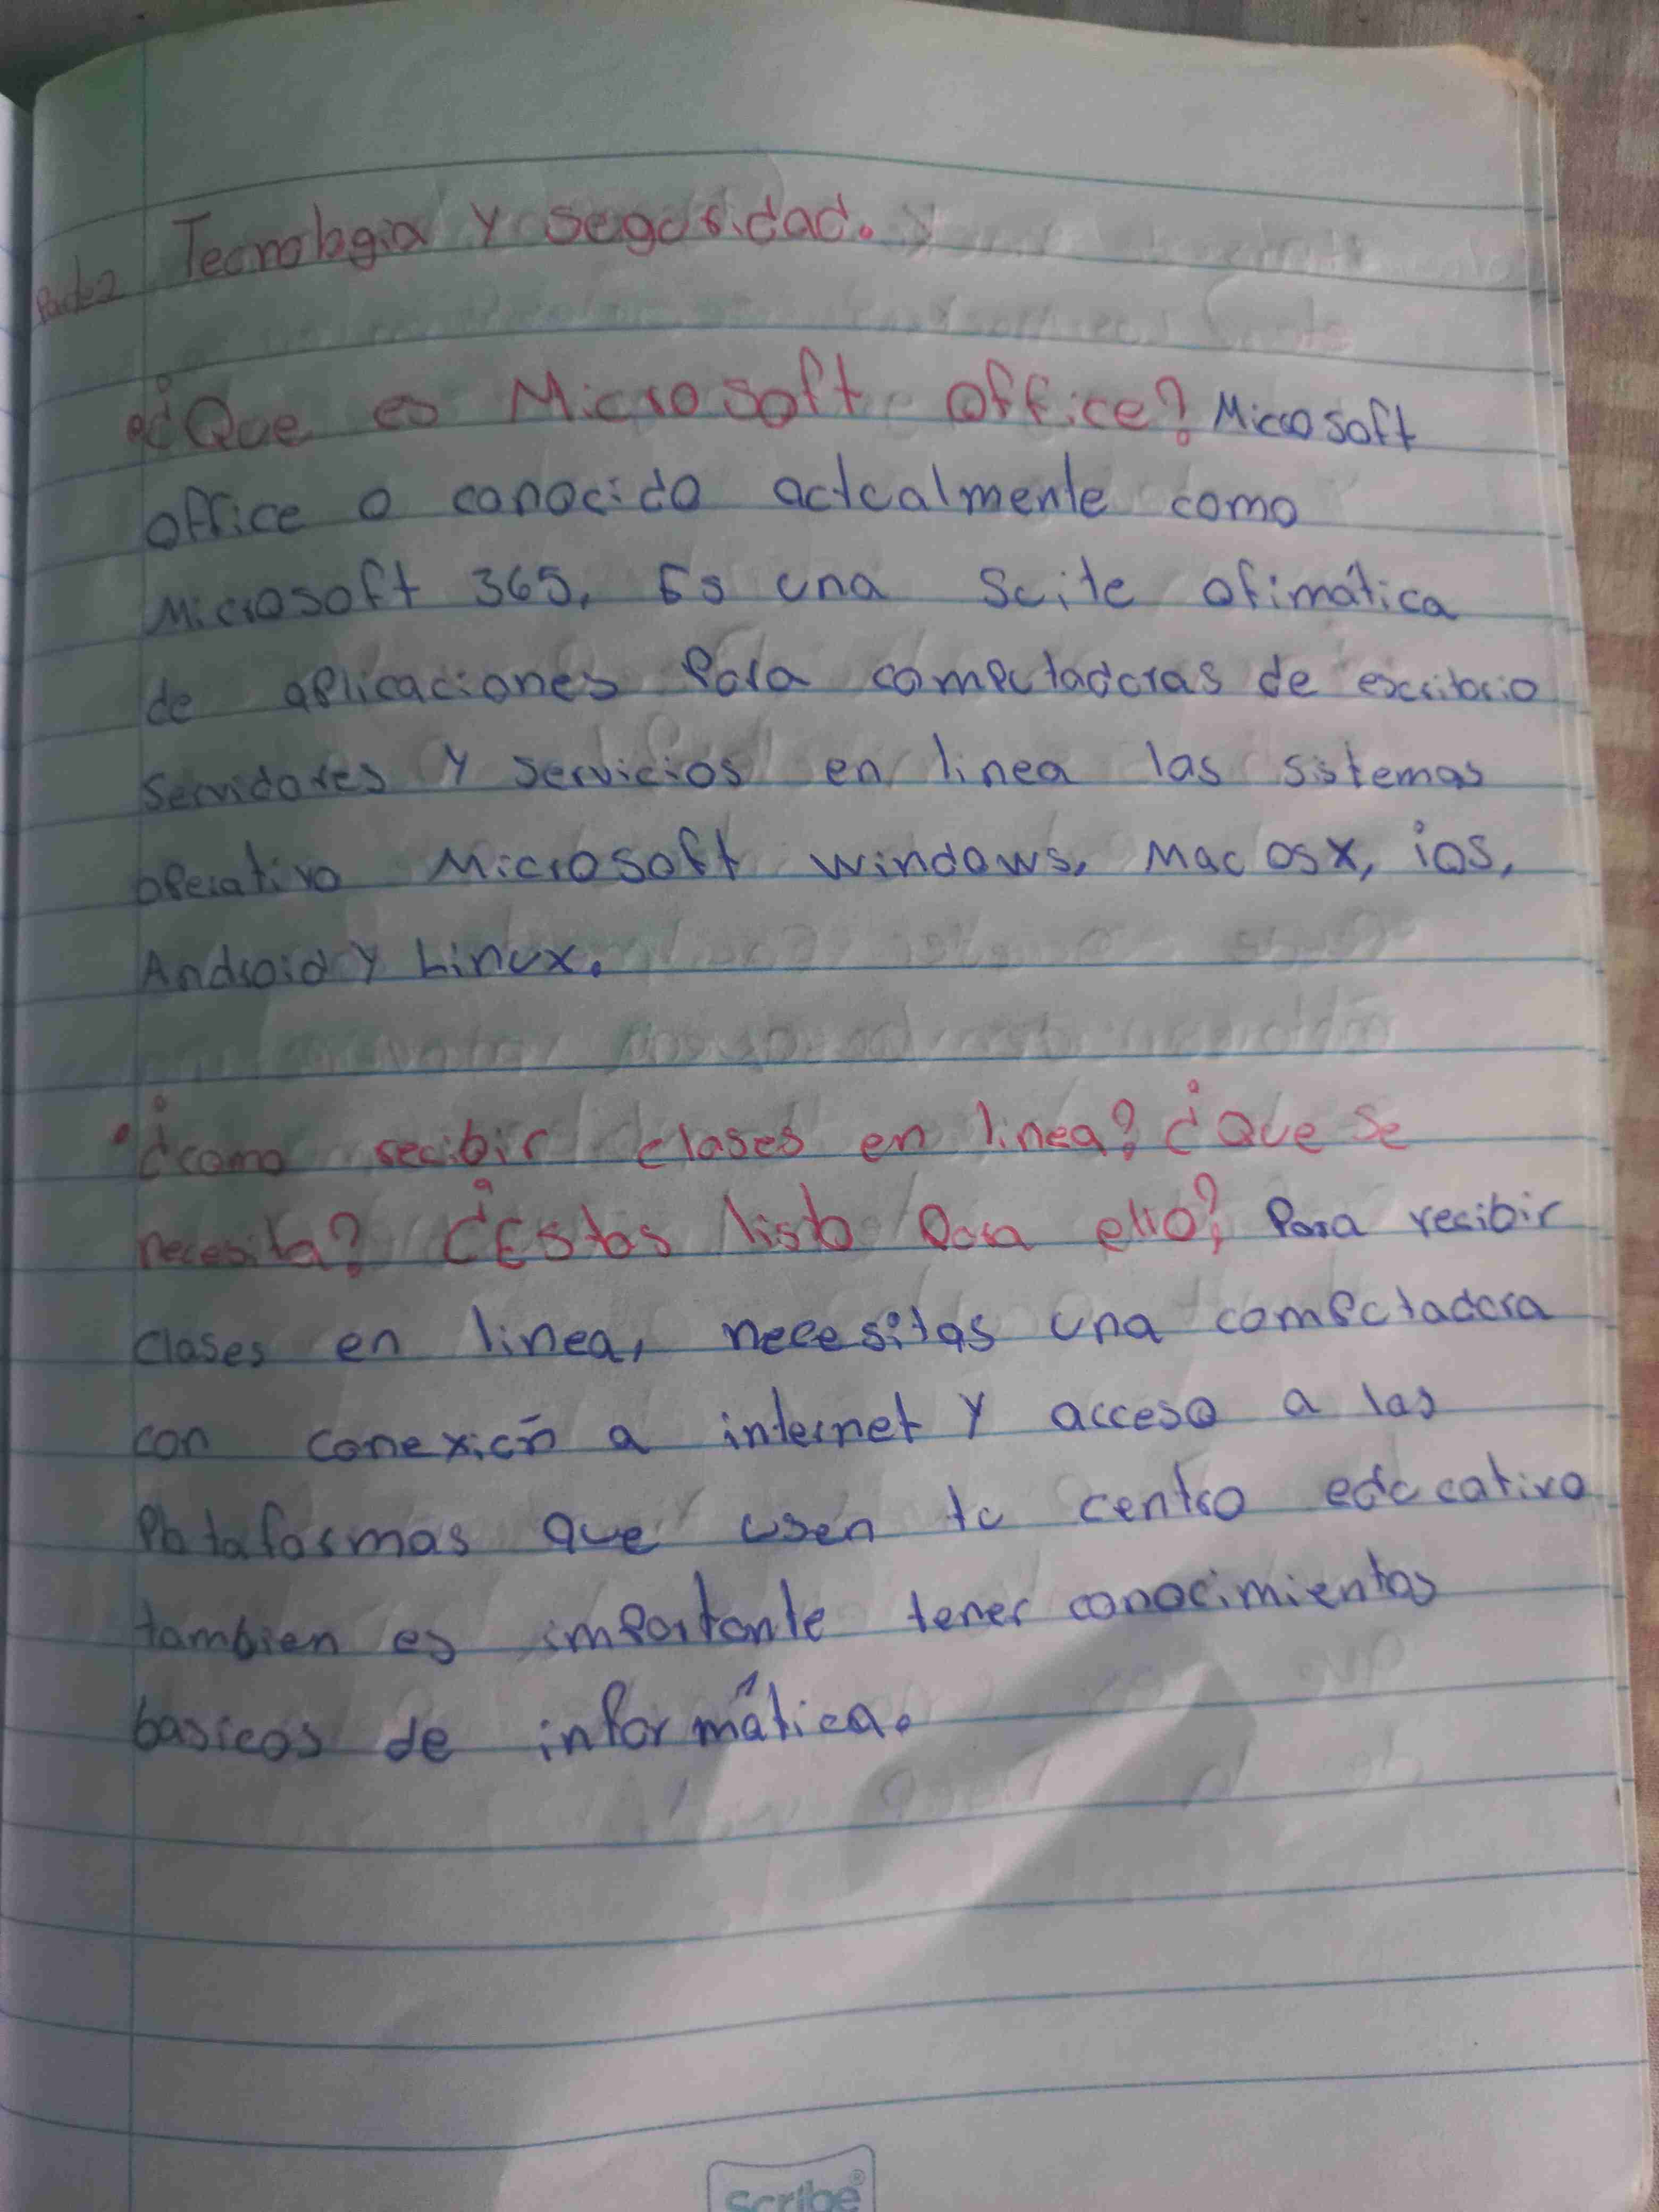 Tecnologia y seguridad.
Parte 2
¿Que es Microsoft office? Microsoft
office o conocido actualmente como
Microsoft 365, Es una Suite ofimática
de aplicaciones Para computadoras de escritorio
servidores y servicios en linea las sistemas
operativo Microsoft windows, Mac OSX, ios,
Android y Linux.
• ¿como recibir clases en linea? ¿Que se
necesita? ¿Estas listo Para ello? Para recibir
clases en linea, necesitas una computadora
con conexión a internet y acceso a las
Plataformas que usen tu centro educativo
tambien es importante tener conocimientos
basicos de informática.
Scribe®